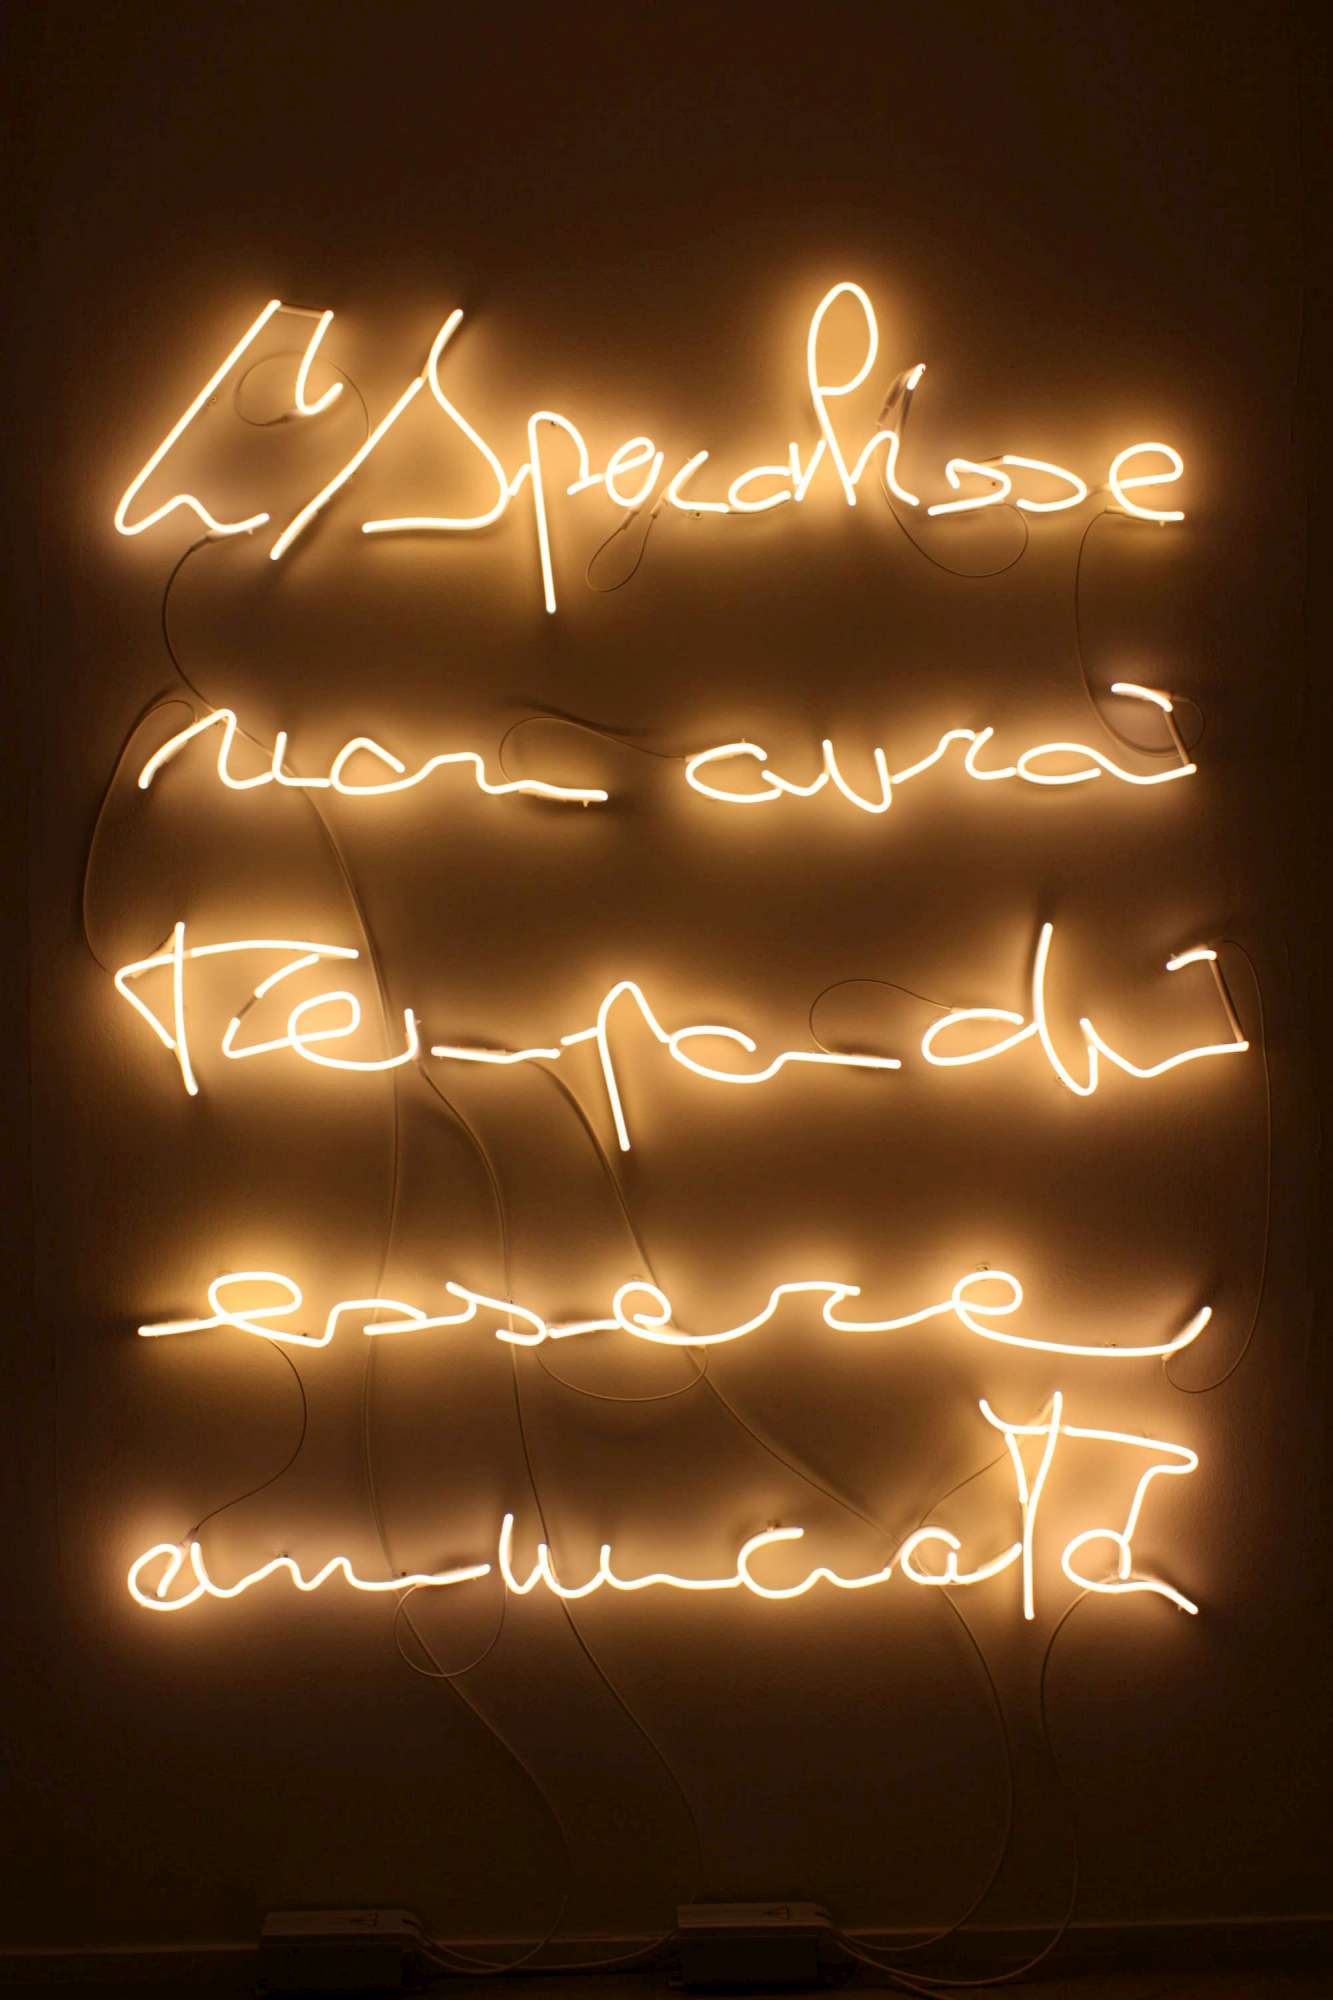 L'Apocalisse
non avrà
tempo di
essere
annunciata